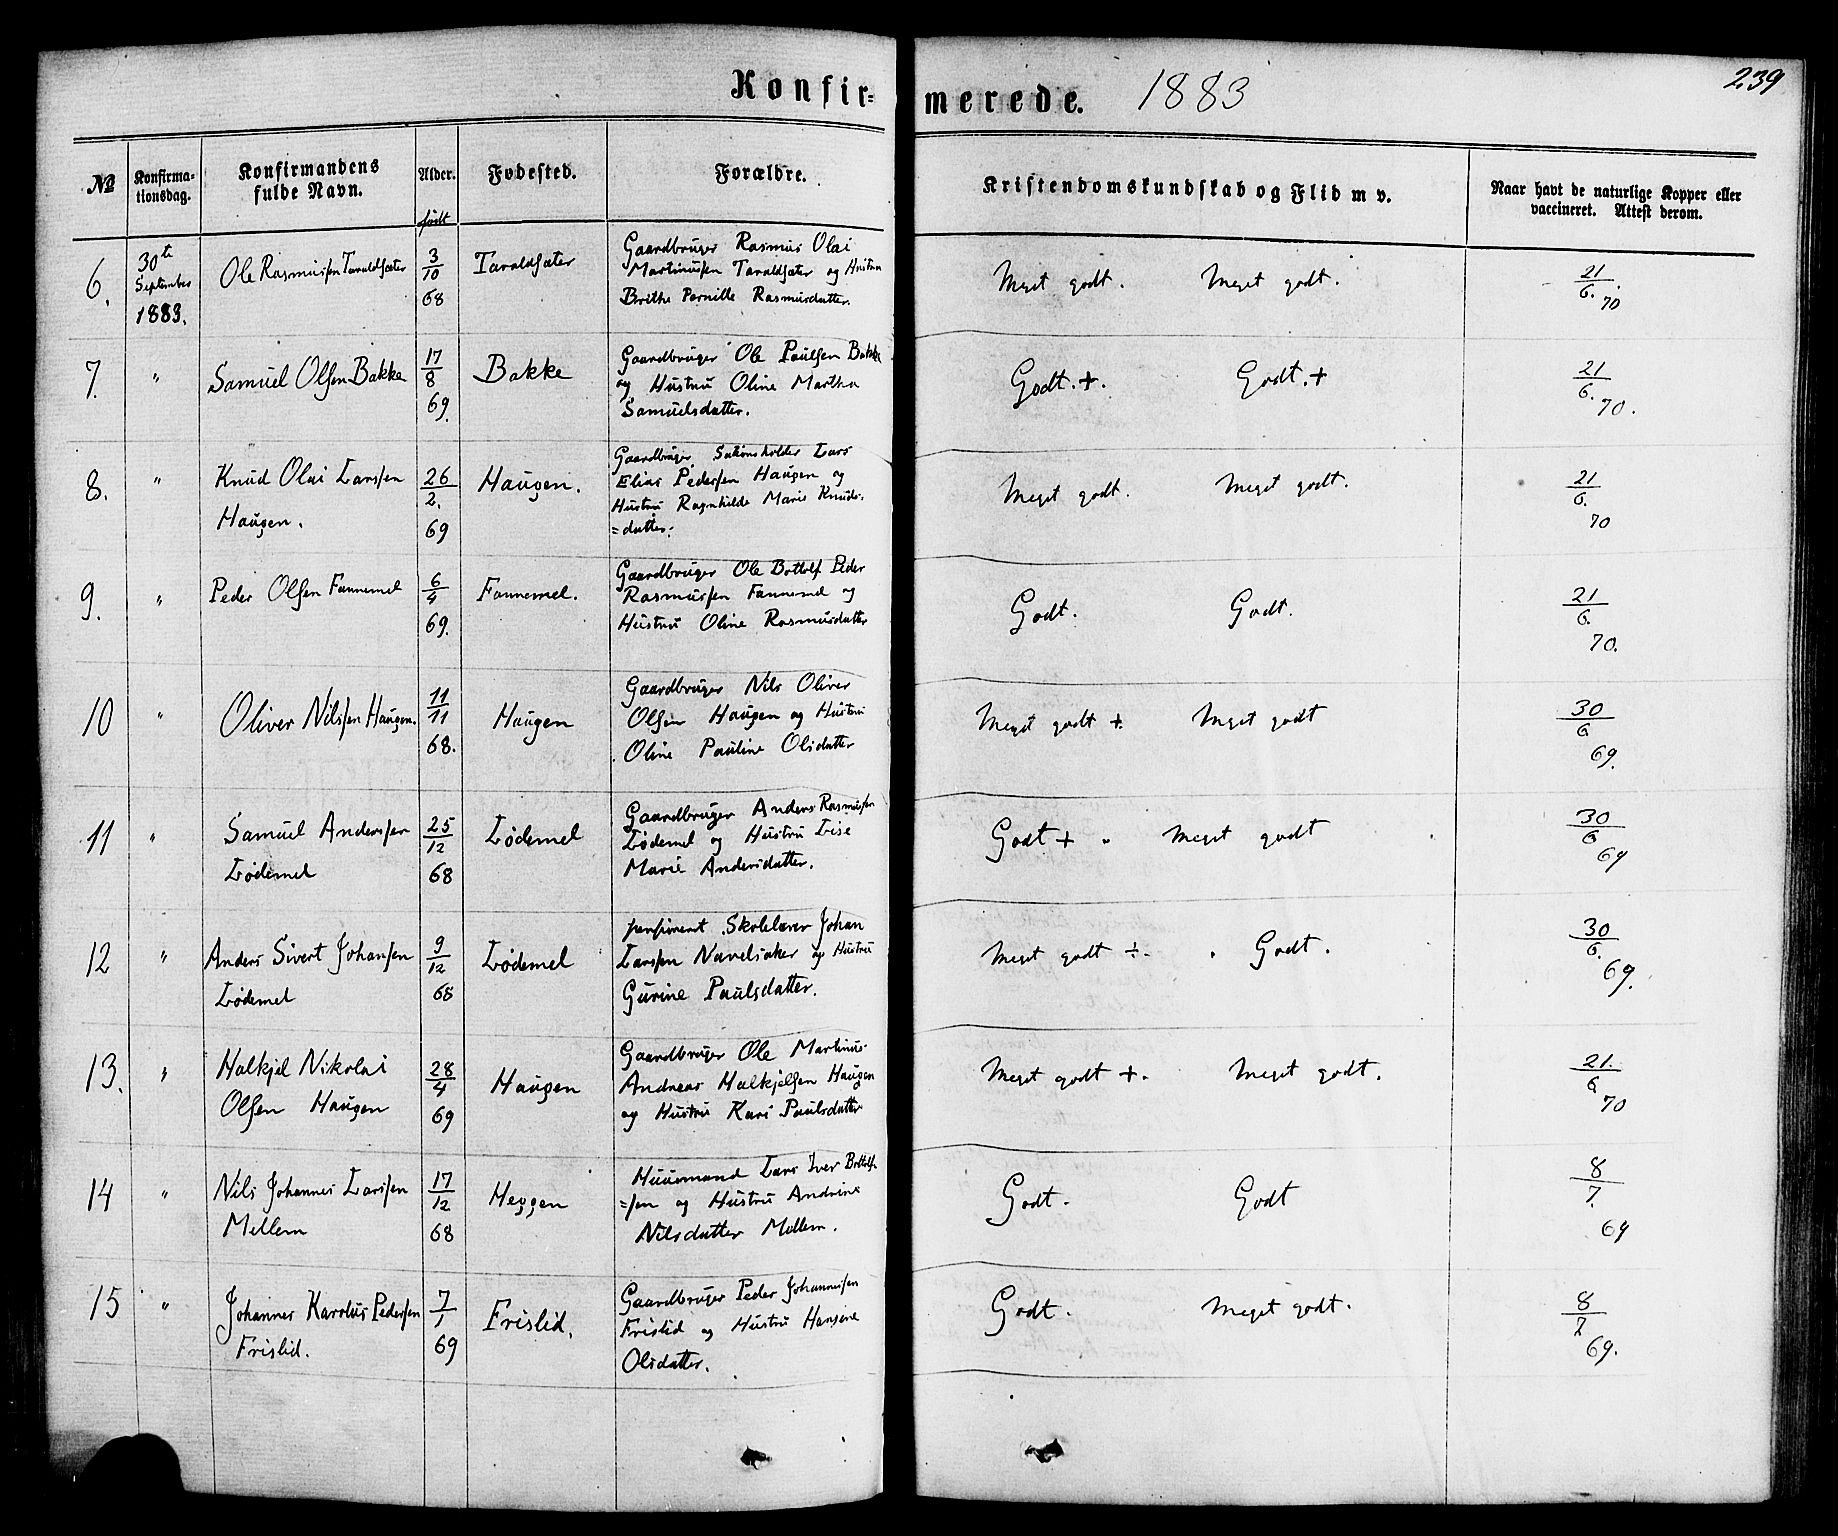 Konfir=
merede. 1883
239
№
Konfirma-
tionsdag.
Konfirmandens
fulde Navn.
Alder.
født
Fødested.
Forældre.
Kristendomskundskab og Flid m v.
Naar havt de naturlige Kopper eller
vaccineret. Attest derom.
6.
30te
September
1883.
Ole Rasmussen Taraldsæter
3/10
68
Taraldsæter
Gaardbruger Rasmus Olai
Martinussen Taraldsæter og Hustru
Brithe Pernille Rasmusdatter.
Meget godt. Meget godt.
21/6. 70
7.
"
Samuel Olsen Bakke
17/8
69.
Bakke
Gaardbruger Ole Paulsen Bakke
og Hustru Oline Martha
Samuelsdatter.
Godt. + Godt. +
21/6. 70.
8.
"
Knud Olai Larssen
Haugen.
26/2.
69
Haugen.
Gaardbruger Lars
Elias Pedersen Haugen og
Hustru Ragnhilde Marie Knuds=
=datter.
Meget godt. Meget godt.
21/6. 70
9.
"
Peder Olsen Fannemel
6/4
69.
Fannemel.
Gaardbruger Ole Bottolf Peder
Rasmussen Fannemel og
Hustru Oline Rasmusdatter
Godt. Godt.
21/6. 70.
10
"
Oliver Nilssen Haugen.
11/11
68.
Haugen
Gaardbruger Nils Oliver
Olsen Haugen og Hustru
Oline Pauline Olsdatter
Meget godt +. Meget godt
30/6 69.
11
"
Samuel Anderssen
Lødemel
25/12
68
Lødemel
Gaardbruger Anders Rasmussen
Lødemel og Hustru Lise
Marie Andersdatter.
Godt + Meget godt
30/6 69
12
"
Anders Sivert Johansen
Lødemel
9/12
68
Lødemel
pensioneret Skolelærer Johan
Larssen Navelsaker og Hustru
Gurine Paulsdatter.
Meget godt ÷. Godt.
30/6. 69.
13.
"
Halkjel Nikolai
Olsen Haugen
28/4
69
Haugen
Gaardbruger Ole Martinus
Andreas Halkjelsen Haugen
og Hustru Kari Paulsdatter
Meget godt +. Meget godt.
21./6 70
14
"
Nils Johannes Larssen
Mellem
17/12
68
Heggen
Huusmand Lars Iver Bottolf=
=sen og Hustru Andrine
Nilsdatter Mellem.
Godt. Godt
8/7. 69
15
"
Johannes Karolus Pedersen
Frislid.
7/1
69
Frislid.
Gaardbruger Peder Johannessen
Frislid og Hustru Hansine
Olsdatter.
Godt. Meget godt.
8/7 69.